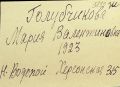 Голубчикова
Мария Валентиновна
1923
Н. Водопой Херсонская 315